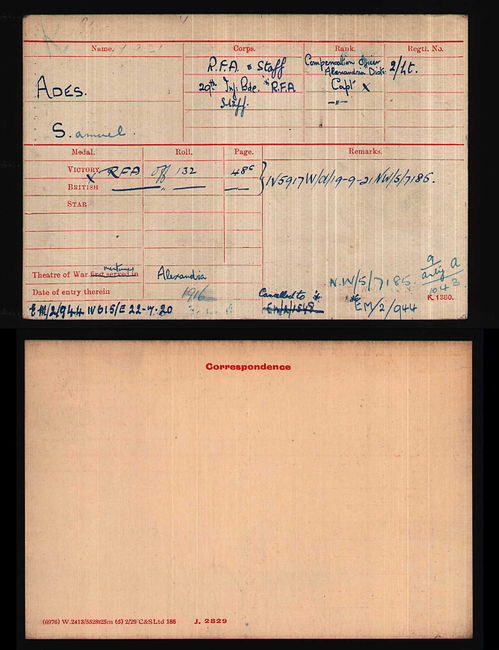 Name. Corps. Rank. Regtl. No.
ADES. R.F.A. & Staff Compensation Officer Alexandria Distr. 2/Lt.
20th Inf. Bde. * R.F.A Capt x
Samuel. Staff. -"-
Medal. Roll. Page. Remarks.
VICTORY x RFA Off 132 485 } IV5917W/d/19-9-21 NW/5/7185.
BRITISH
STAR
Theatre of War first served in Alexandria
Date of entry therein 1916
N.W/5/7185
Cancelled to *
EM/2/944 IV615/E 22-4-20
* EM/2/944
K. 1380.
Correspondence
(6976) W.2413/5528 25m (6) 2/29 C&S Ltd 186 J. 2829